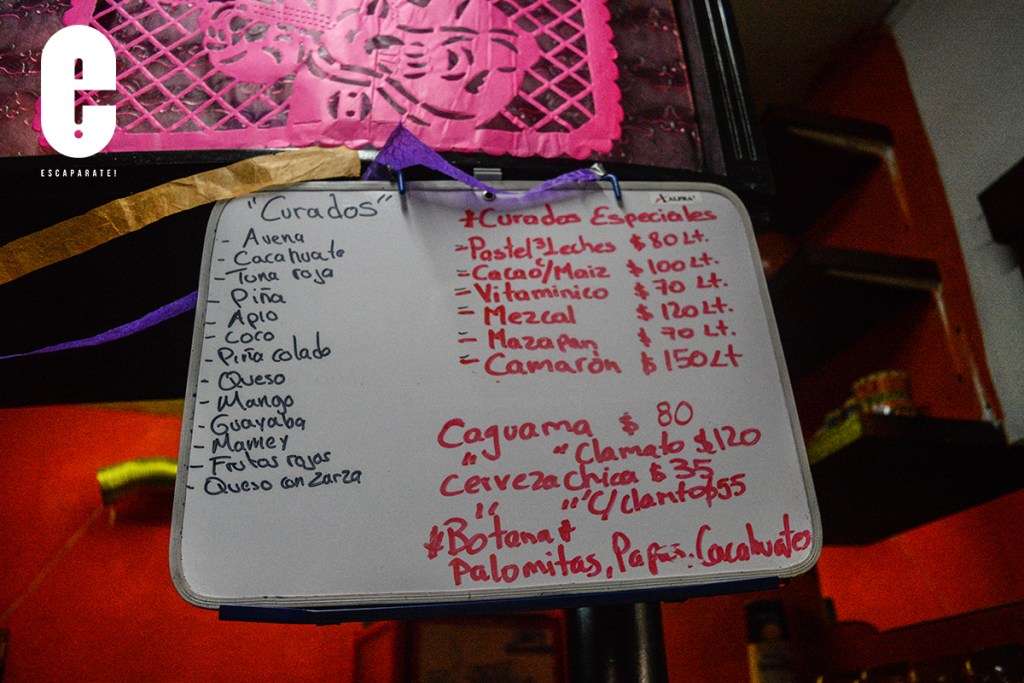 e
ESCAPARATE!
"Curados"
- Avena
- Cacahuate
- Tuna roja
- Piña
- Apio
- Coco
- Piña colado
- Queso
- Mango
- Guayaba
- Mamey
- Frutas rojas
- Queso con zarza
ALPRA
*Curados Especiales
- Pastel 3 Leches $80 Lt.
- Cacao c/Maiz $100 Lt.
- Vitaminico $70 Lt.
- Mezcal $120 Lt.
- Mazapan $70 Lt.
- Camarón $150 Lt
Caguama $80
" " Clamato $120
Cerveza chica $35
" " C/clamto $55
*Botana*
Palomitas, Papas. Cacahuates